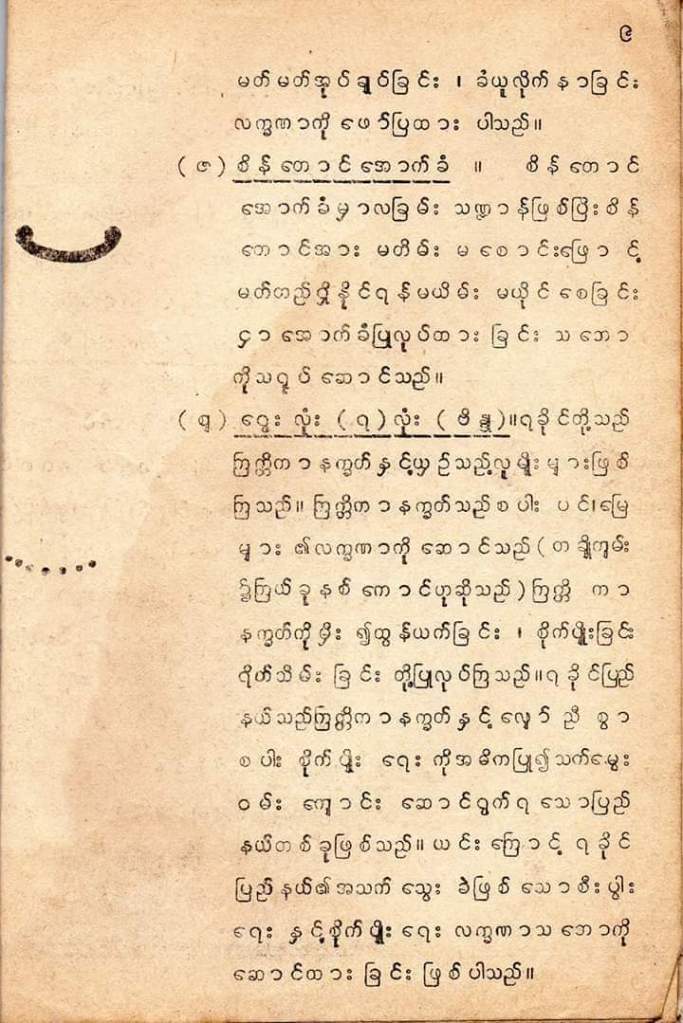 ၉
မတ်မတ်အုပ်ချုပ်ခြင်း ၊ ခံယူလိုက်နာခြင်း
လက္ခဏာကို ဖော်ပြထား ပါသည်။
(ဇ) စိန်တောင်အောက်ခံ ။ စိန်တောင်
အောက်ခံမှာလခြမ်း သဏ္ဌာန်ဖြစ်ပြီးစိန်
တောင်အား မတိမ်း မစောင်းဖြောင့်
မတ်တည်ရှိနိုင်ရန်မယိမ်း မယိုင်စေခြင်း
ငှာ အောက်ခံပြုလုပ်ထား ခြင်း သဘော
ကိုသရုပ်ဆောင်သည်။
(ဈ) ရွှေး လုံး (၇) လုံး (ဗိန္ဒု)။ရခိုင်တို့သည်
ကြတ္တိကာနက္ခတ်နှင့်ယှဉ်သည့်လူမျိုးများဖြစ်
ကြသည်။ ကြတ္တိကာနက္ခတ်သည်စပါး ပင်၊မြေ
များ ၏လက္ခဏာကို ဆောင်သည်(တချို့ကျမ်း
၌ကြယ်ခုနစ်ကောင်ဟုဆိုသည်)ကြတ္တိ ကာ
နက္ခတ်ကိုမှီး ၍ထွန်ယက်ခြင်း ၊ စိုက်ပျိုးခြင်း
ရိတ်သိမ်း ခြင်း တို့ပြုလုပ်ကြသည်။ရခိုင်ပြည်
နယ်သည်ကြတ္တိကာနက္ခတ်နှင့်လျှော်ညီ စွာ
စပါး စိုက်ပျိုး ရေး ကိုအဓိကပြု၍သက်မွေး
ဝမ်း ကျောင်း ဆောင်ရွက်ရသောပြည်
နယ်တစ်ခုဖြစ်သည်။ ယင်းကြောင့် ရခိုင်
ပြည်နယ်၏အသက်သွေး ခဲဖြစ်သောစီးပွါး
ရေး နှင့်စိုက်ပျိုး ရေး လက္ခဏာသဘောကို
ဆောင်ထား ခြင်း ဖြစ်ပါသည်။